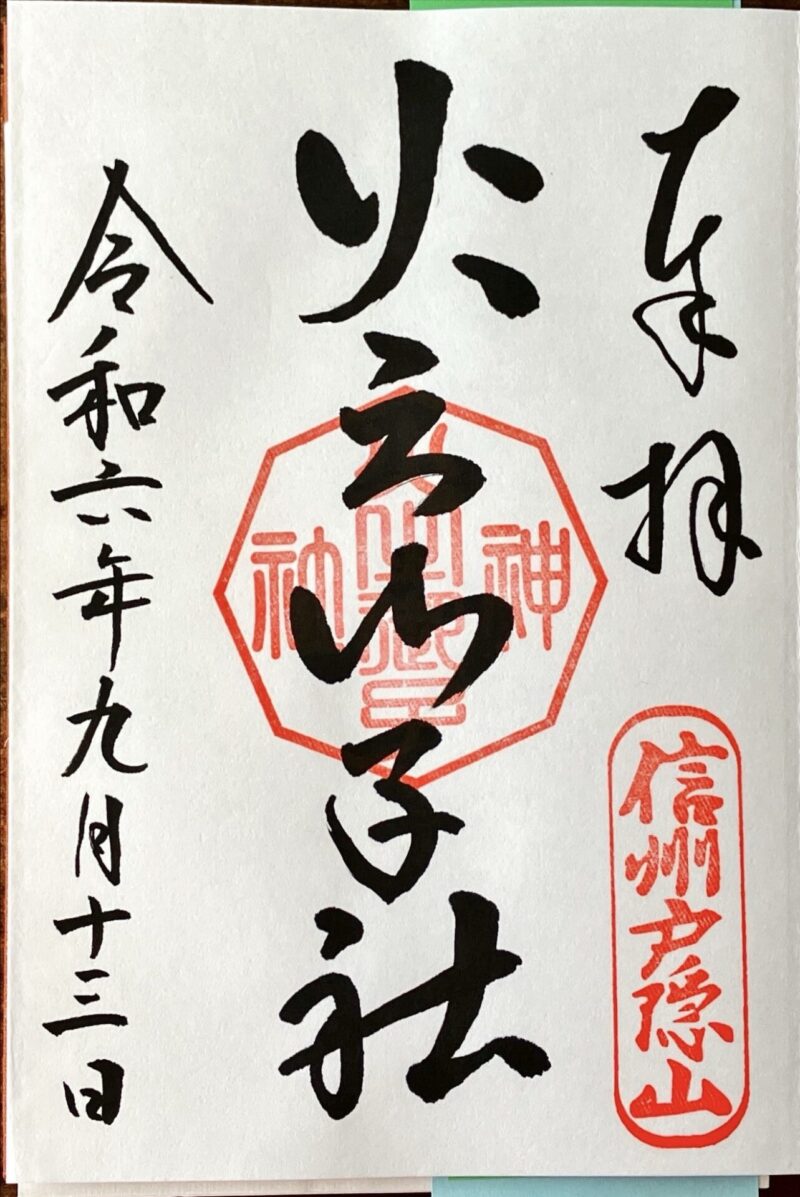 奉拝
信州戸隠山
火之御子社
火之御子
神社
令和六年九月十三日